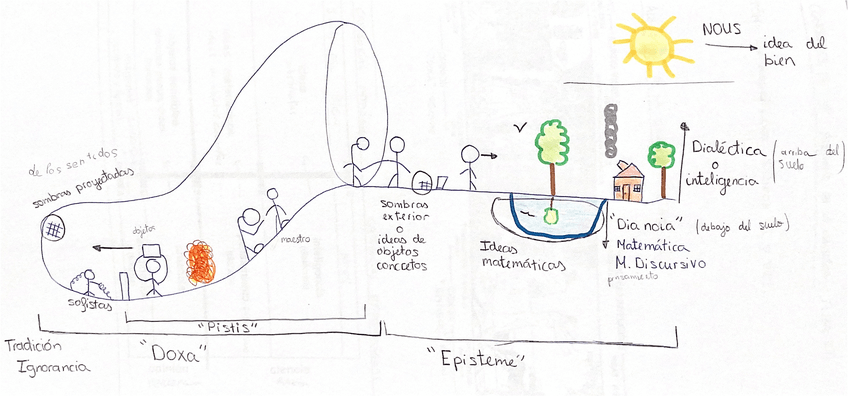 NOUS
idea del
bien
de los sentidos
sombras proyectadas
objetos
sofistas
maestro
sombras
exterior
o
ideas de
objetos
concretos
Ideas
matemáticas
Dialéctica
o
inteligencia
(arriba del
suelo)
"Dia noia" (debajo del suelo)
Matemática
M. Discursivo
pensamiento
"Pistis"
"Doxa"
"Episteme"
Tradición
Ignorancia